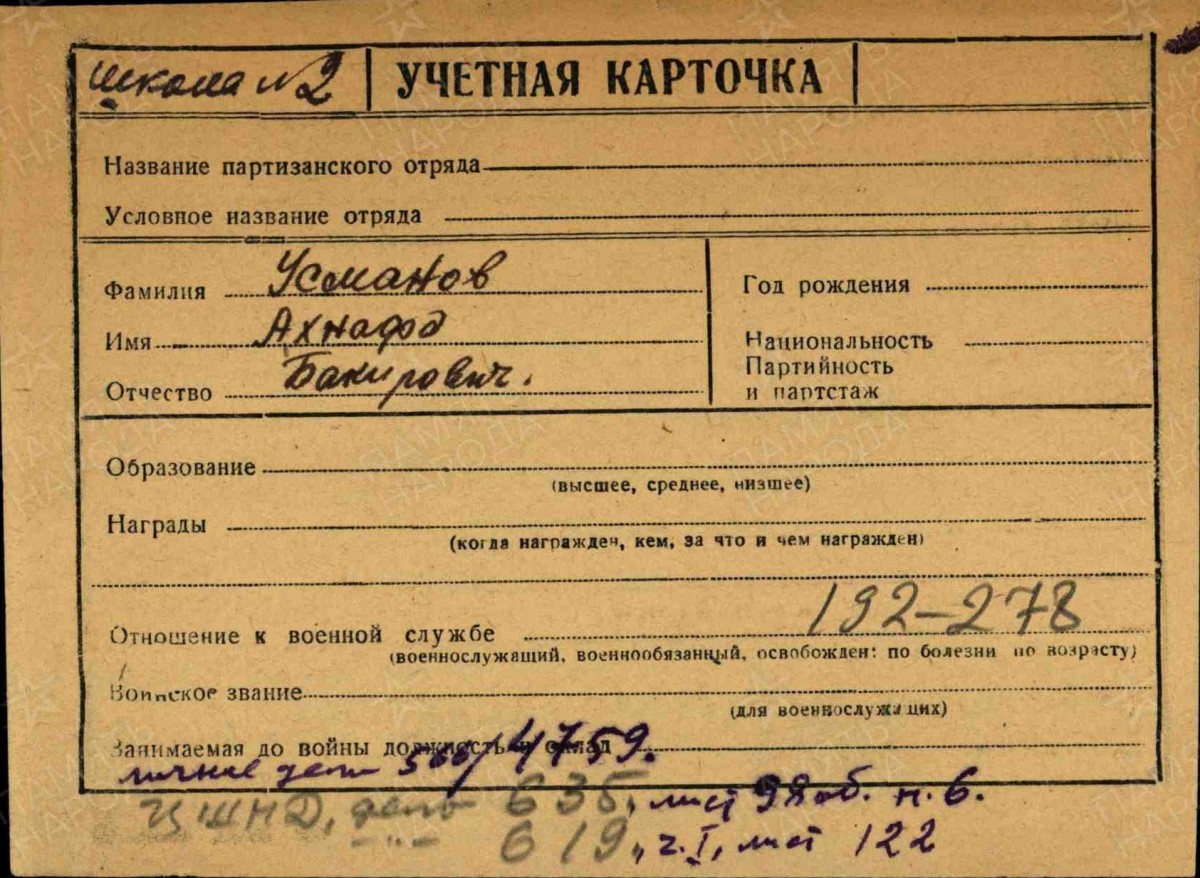 школа № 2 УЧЕТНАЯ КАРТОЧКА
Название партизанского отряда
Условное название отряда
Фамилия Усманов
Имя Ахнафд
Отчество Бакирович.
Год рождения
Национальность
Партийность
и партстаж
Образование
(высшее, среднее, низшее)
Награды
(когда награжден, кем, за что и чем награжден)
192-278
Отношение к военной службе
(военнослужащий, военнообязанный, освобожден: по болезни по возрасту)
Воинское звание
(для военнослужащих)
Занимаемая до войны должность и оклад
личное дело 566/4759.
ЦШПД, дело 635, лист 98 об. н. 6.
—"— 619, ч. I, лист 122